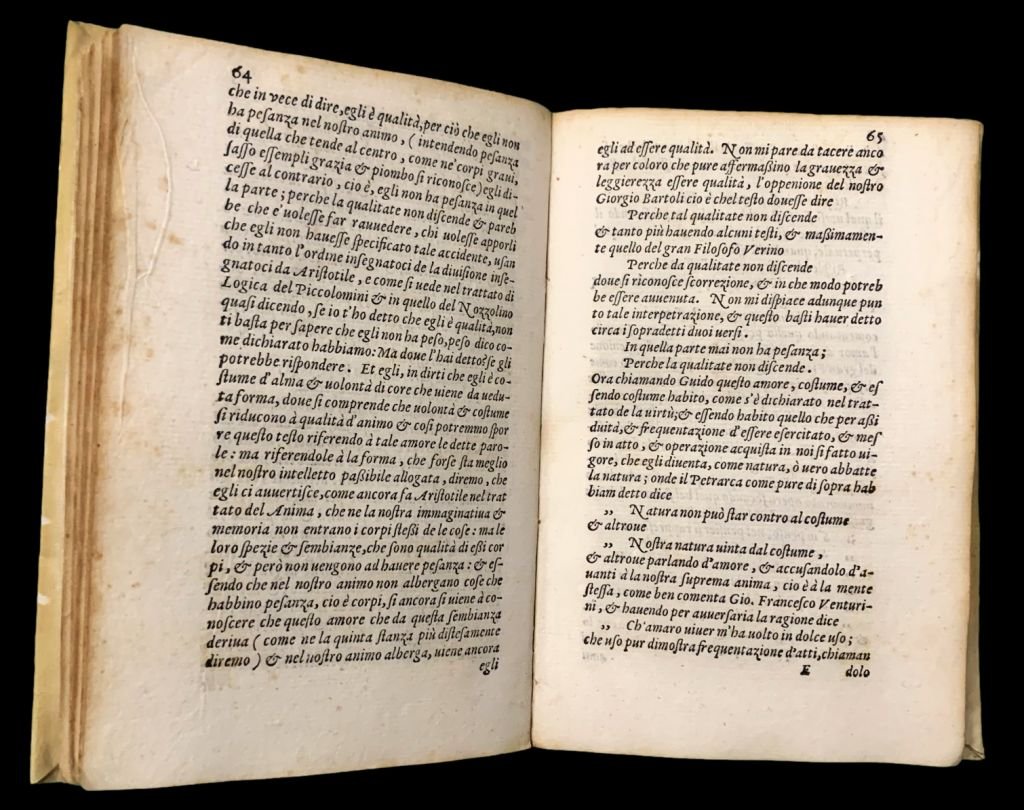 64
che in vece di dire, egli è qualità, per ciò che egli non
ha peſanza nel noſtro animo, ( intendendo peſanza
di quella che tende al centro, come ne' corpi graui,
ſaſſo eſſempli grazia & piombo ſi riconoſce) egli di-
ceſſe al contrario, cio è, egli non ha peſanza in quel
la parte; perche la qualitate non diſcende & pareb
be che e' uoleſſe far rauuedere, chi uoleſſe apporli
che egli non haueſſe ſpecificato tale accidente, uſan
do in tanto l'ordine inſegnatoci de la diuiſione inſe-
gnatoci da Ariſtotile, e come ſi uede nel trattato di
Logica del Piccolomini & in quello del Nozzolino
quaſi dicendo, ſe io t'ho detto che egli è qualità, non
ti baſta per ſapere che egli non ha peſo, peſo dico co-
me dichiarato habbiamo: Ma doue l'hai detto? ſe gli
potrebbe riſpondere. Et egli, in dirti che egli è co-
ſtume d'alma & uolontà di core che uiene da uedu-
ta forma, doue ſi comprende che uolontà & coſtume
ſi riducono à qualità d'animo & coſi potremmo ſpor
re queſto teſto riferendo à tale amore le dette paro-
le: ma riferendole à la forma, che forſe ſta meglio
nel noſtro intelletto paſſibile allogata, diremo, che
egli ci auuertiſce, come ancora fa Ariſtotile nel trat
tato del Anima, che ne la noſtra immaginatiua &
memoria non entrano i corpi ſteſſi de le coſe: ma le
loro ſpezie & ſembianze, che ſono qualità di eſſi cor
pi, & però non uengono ad hauere peſanza: & eſ-
ſendo che nel noſtro animo non albergano coſe che
habbino peſanza, cio è corpi, ſi ancora ſi uiene à co-
noſcere che queſto amore che da queſta ſembianza
deriua ( come ne la quinta ſtanza più diſteſamente
diremo ) & nel uoſtro animo alberga, uiene ancora
egli
65
egli ad eſſere qualità. Non mi pare da tacere anco
ra per coloro che pure affermaſſino la grauezza &
leggierezza eſſere qualità, l'oppenione del noſtro
Giorgio Bartoli cio è chel teſto doueſſe dire
Perche tal qualitate non diſcende
& tanto più hauendo alcuni teſti, & maſſimamen-
te quello del gran Filoſofo Verino
Perche da qualitate non diſcende
doue ſi riconoſce ſcorrezione, & in che modo potreb
be eſſere auuenuta. Non mi diſpiace adunque pun
to tale interpetrazione, & queſto baſti hauer detto
circa i ſopradetti duoi uerſi.
In quella parte mai non ha peſanza;
Perche la qualitate non diſcende.
Ora chiamando Guido queſto amore, coſtume, & eſ
ſendo coſtume habito, come s'è dichiarato nel trat-
tato de la uirtù; & eſſendo habito quello che per aſſi
duità, & frequentazione d'eſſere eſercitato, & meſ
ſo in atto, & operazione acquiſta in noi ſi fatto ui-
gore, che egli diuenta, come natura, ò uero abbatte
la natura; onde il Petrarca come pure di ſopra hab
biam detto dice
„ Natura non può ſtar contro al coſtume
& altroue
„ Noſtra natura uinta dal coſtume,
& altroue parlando d'amore, & accuſandolo d'a-
uanti à la noſtra ſuprema anima, cio è à la mente
ſteſſa, come ben comenta Gio. Franceſco Venturi-
ni, & hauendo per auuerſaria la ragione dice
„ Ch'amaro uiuer m'ha uolto in dolce uſo;
che uſo pur dimoſtra frequentazione d'atti, chiaman
E dolo